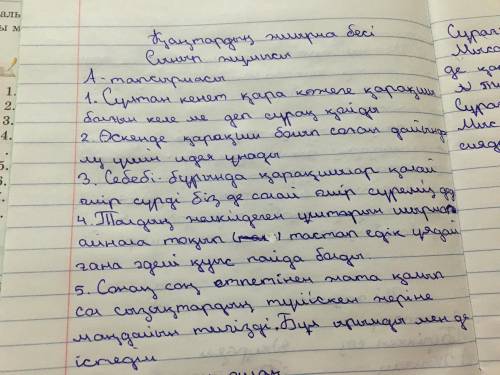 Қаңтардың жиырма бесі
Сынып жұмысы
А-тапсырмасы
1. Сұлтан кенет қара көжеге қарақшы
болғың келе ме деп сұрақ қойды
2. Өскенде қарақшы болып солай дайында
лу үшін идея ұнады
3. Себебі бұрында қарақшылар қалай
өмір сүрді біз де солай өмір сүреміз деді
4. Талдың желкілдеген ұштарын шырмап
айнала тоқып тастап едік ұядай
ғана әдемі қуыс пайда болды.
5. Содан соң етпетінен жата қалып
сол сызықтардың түйіскен жеріне
маңдайын тигізді. Бұл ырымды мен де
істедім
Сұрақ
Мыса
де қа
Сұрақ
Мыс
сияқ
1.
2.
3.
4.
5.